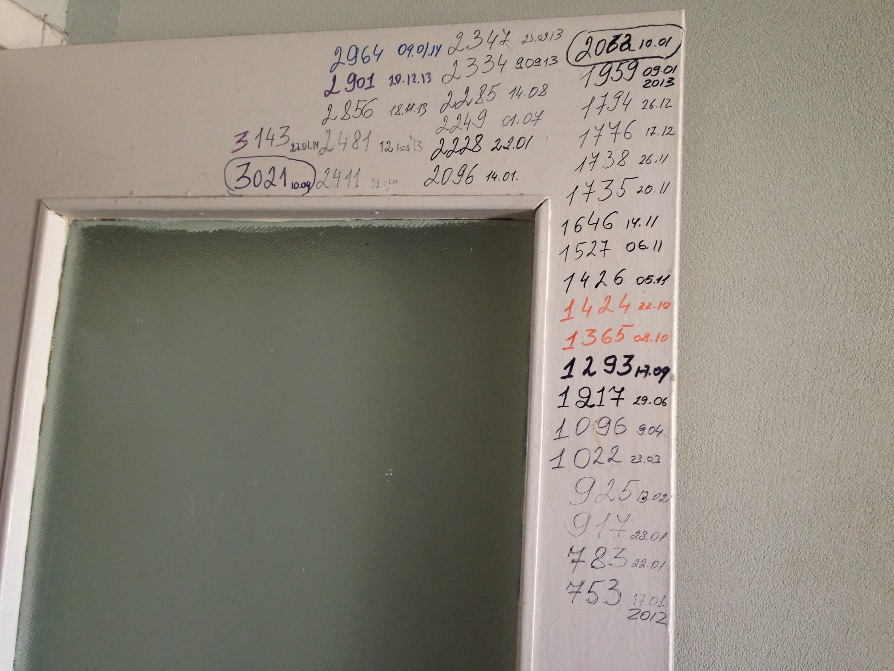 2964 09.01.14
2901 20.12.13
2856 18.11.13
3143 22.01.14
2481
3021 10.09
2411
2347
2334 9.09.13
2285 14.08
2249 01.07
2228 22.01
2096 14.01.
2032 10.01
1959 09.01
2013
1794 26.12
1776 17.12
1738 26.11
1735 20.11
1646 14.11
1527 06.11
1426 05.11
1424 22.10
1365 08.10
1293 17.09
1217 29.06
1096 9.04
1022 23.03
925 13.02
917 23.01
783 22.01
753 17.01
2012